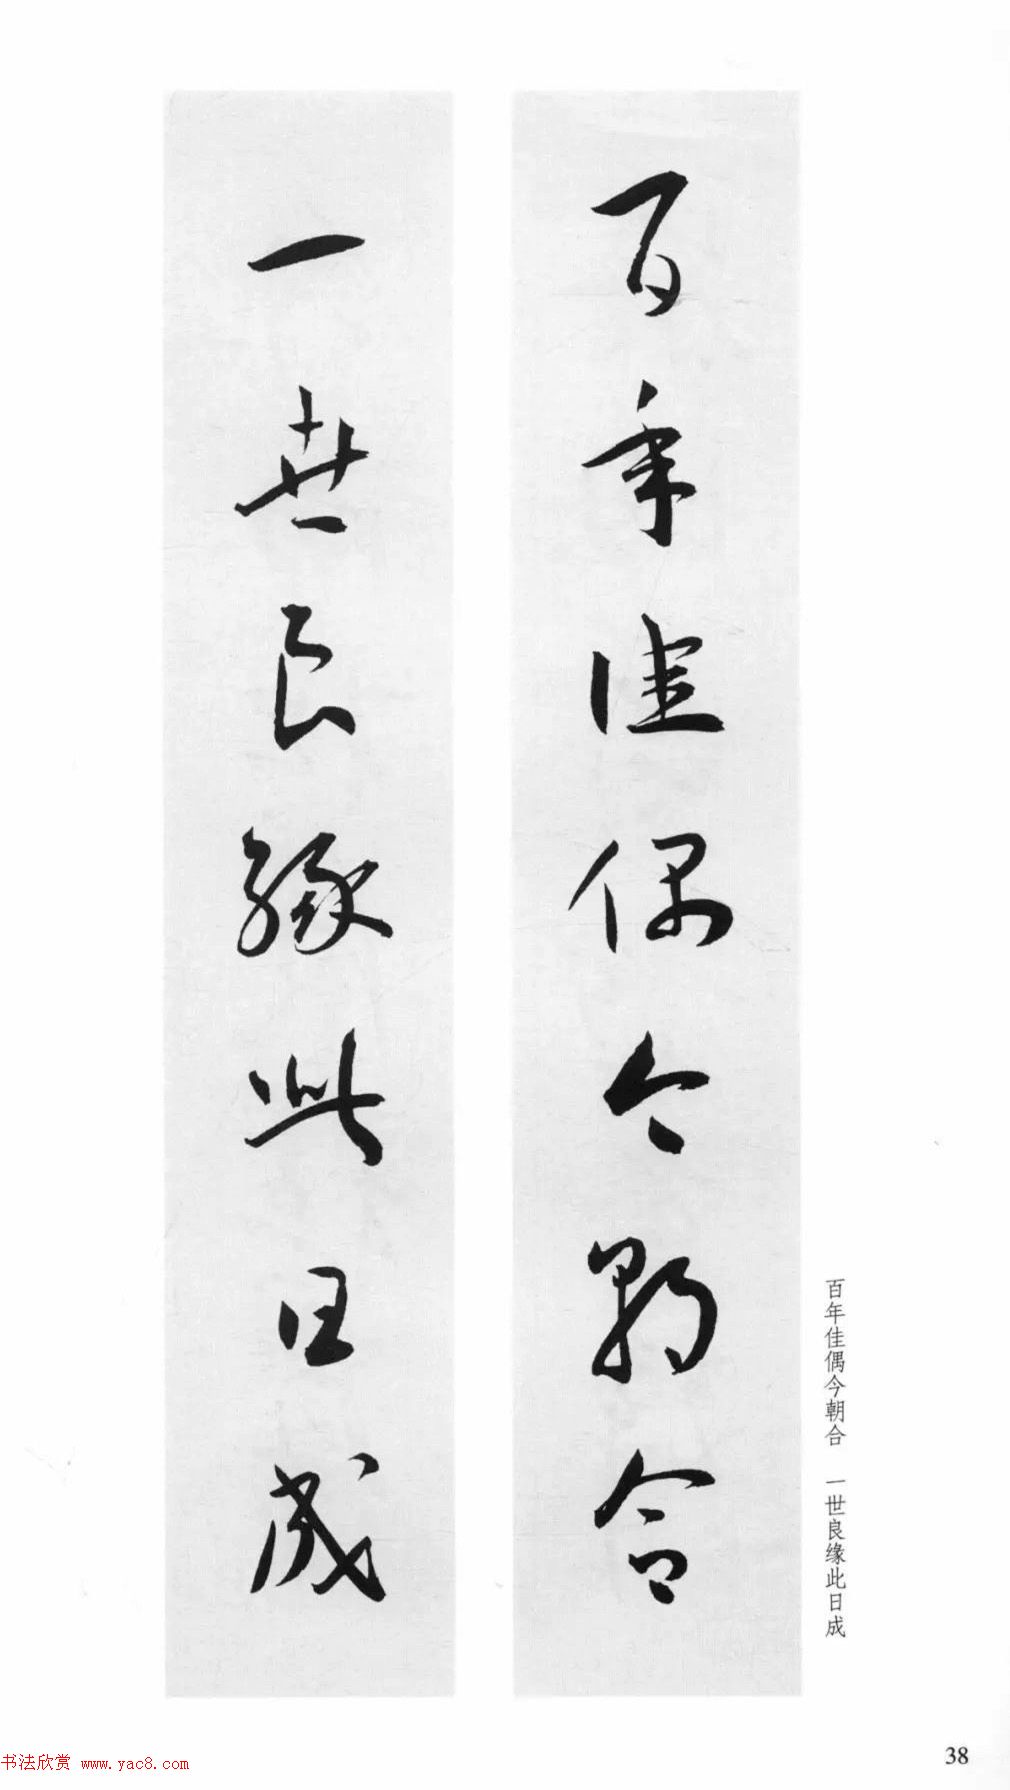 百年佳偶今朝合
一世良緣此日成
百年佳偶今朝合　一世良缘此日成
书法欣赏 www.yac8.com
38